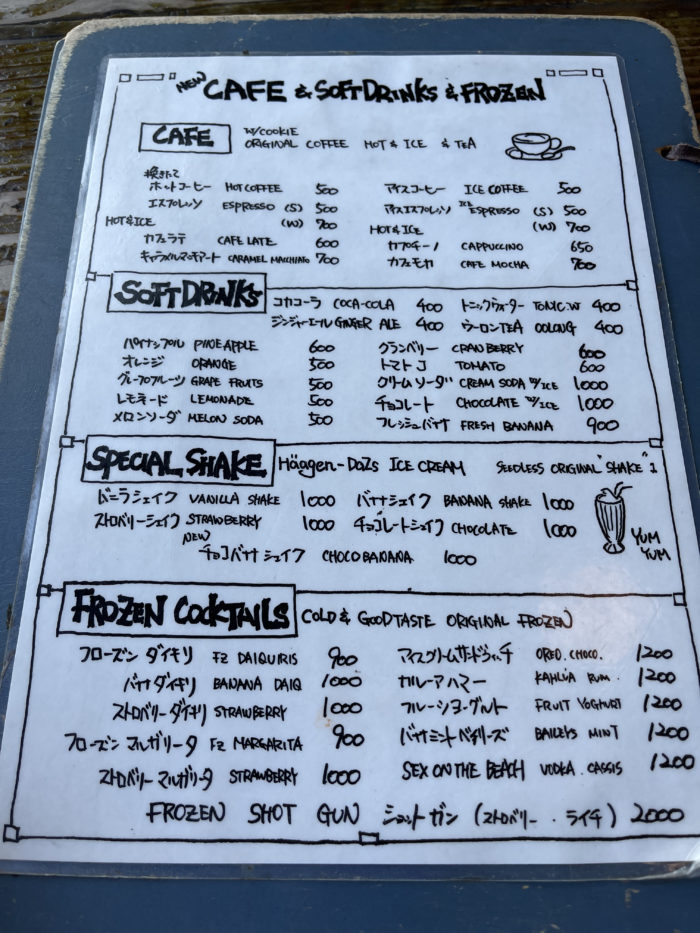 NEW CAFE & SOFT DRINKS & FROZEN
CAFE W/COOKIE
ORIGINAL COFFEE HOT & ICE & TEA
挽きたて
ホットコーヒー HOT COFFEE 500 アイスコーヒー ICE COFFEE 500
エスプレッソ ESPRESSO (S) 500 アイスエスプレッソ ICE ESPRESSO (S) 500
HOT&ICE (W) 700 HOT&ICE (W) 700
カフェラテ CAFE LATE 600 カプチーノ CAPPUCCINO 650
キャラメルマキアート CARAMEL MACCHIATO 700 カフェモカ CAFE MOCHA 700
SOFT DRINKS コカコーラ COCA-COLA 400 トニックウォーター TONIC.W 400
ジンジャーエール GINGER ALE 400 ウーロンTEA OOLONG 400
パイナップル PINEAPPLE 600 クランベリー CRANBERRY 600
オレンジ ORANGE 500 トマトJ TOMATO 600
グレープフルーツ GRAPE FRUITS 500 クリームソーダ CREAM SODA W/ICE 1000
レモネード LEMONADE 500 チョコレート CHOCOLATE W/ICE 1000
メロンソーダ MELON SODA 500 フレッシュバナナ FRESH BANANA 900
SPECIAL SHAKE Häagen-DaZs ICE CREAM SEEDLESS ORIGINAL "SHAKE"
バニラシェイク VANILLA SHAKE 1000 バナナシェイク BANANA SHAKE 1000
ストロベリーシェイク STRAWBERRY 1000 チョコレートシェイク CHOCOLATE 1000
NEW
チョコバナナシェイク CHOCOBANANA 1000
YUM
YUM
FROZEN COCKTAILS COLD & GOOD TASTE ORIGINAL FROZEN
フローズン ダイキリ FZ DAIQUIRIS 900 アイスクリームサンドウィッチ OREO.CHOCO. 1200
バナナダイキリ BANANA DAIQ 1000 カルーアハマー KAHLUA RUM. 1200
ストロベリーダイキリ STRAWBERRY 1000 フルーツヨーグルト FRUIT YOGHURT 1200
フローズン マルガリータ FZ MARGARITA 900 バナナミントベイリーズ BAILEYS MINT 1200
ストロベリー マルガリータ STRAWBERRY 1000 SEX ON THE BEACH VODKA.CASSIS 1200
FROZEN SHOT GUN ショットガン (ストロベリー・ライチ) 2000